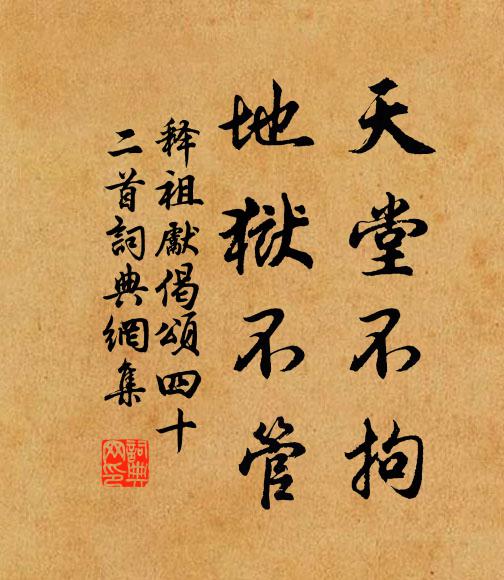 天堂不拘
地獄不管
释祖獻偈頌四十
二首詞典網集
詞典
网印